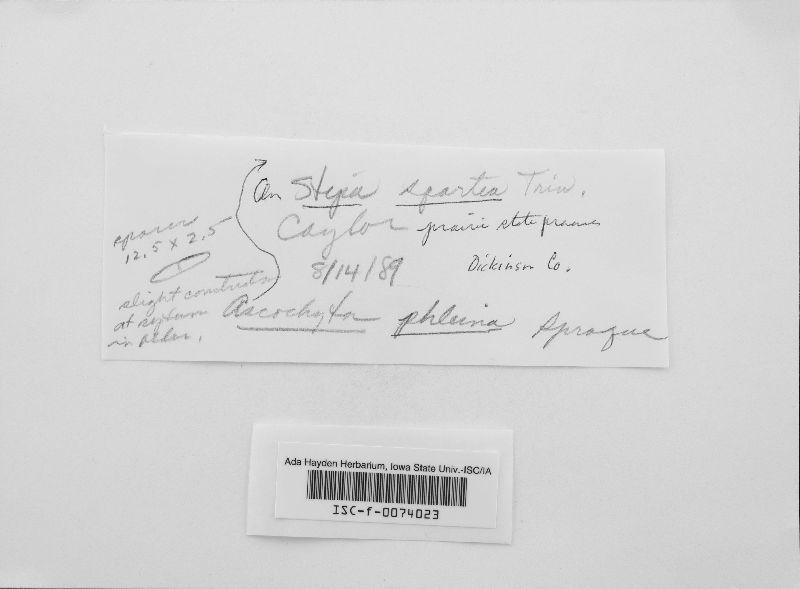 On Stipa spartea Trin.
Caylor prairie state
8/14/89
Dickinson Co.
Ascochyta phleina Sprague
spores
12.5 x 2.5
slight constriction
at septum
in older.
Ada Hayden Herbarium, Iowa State Univ.-ISC/IA
ISC-f-0074023